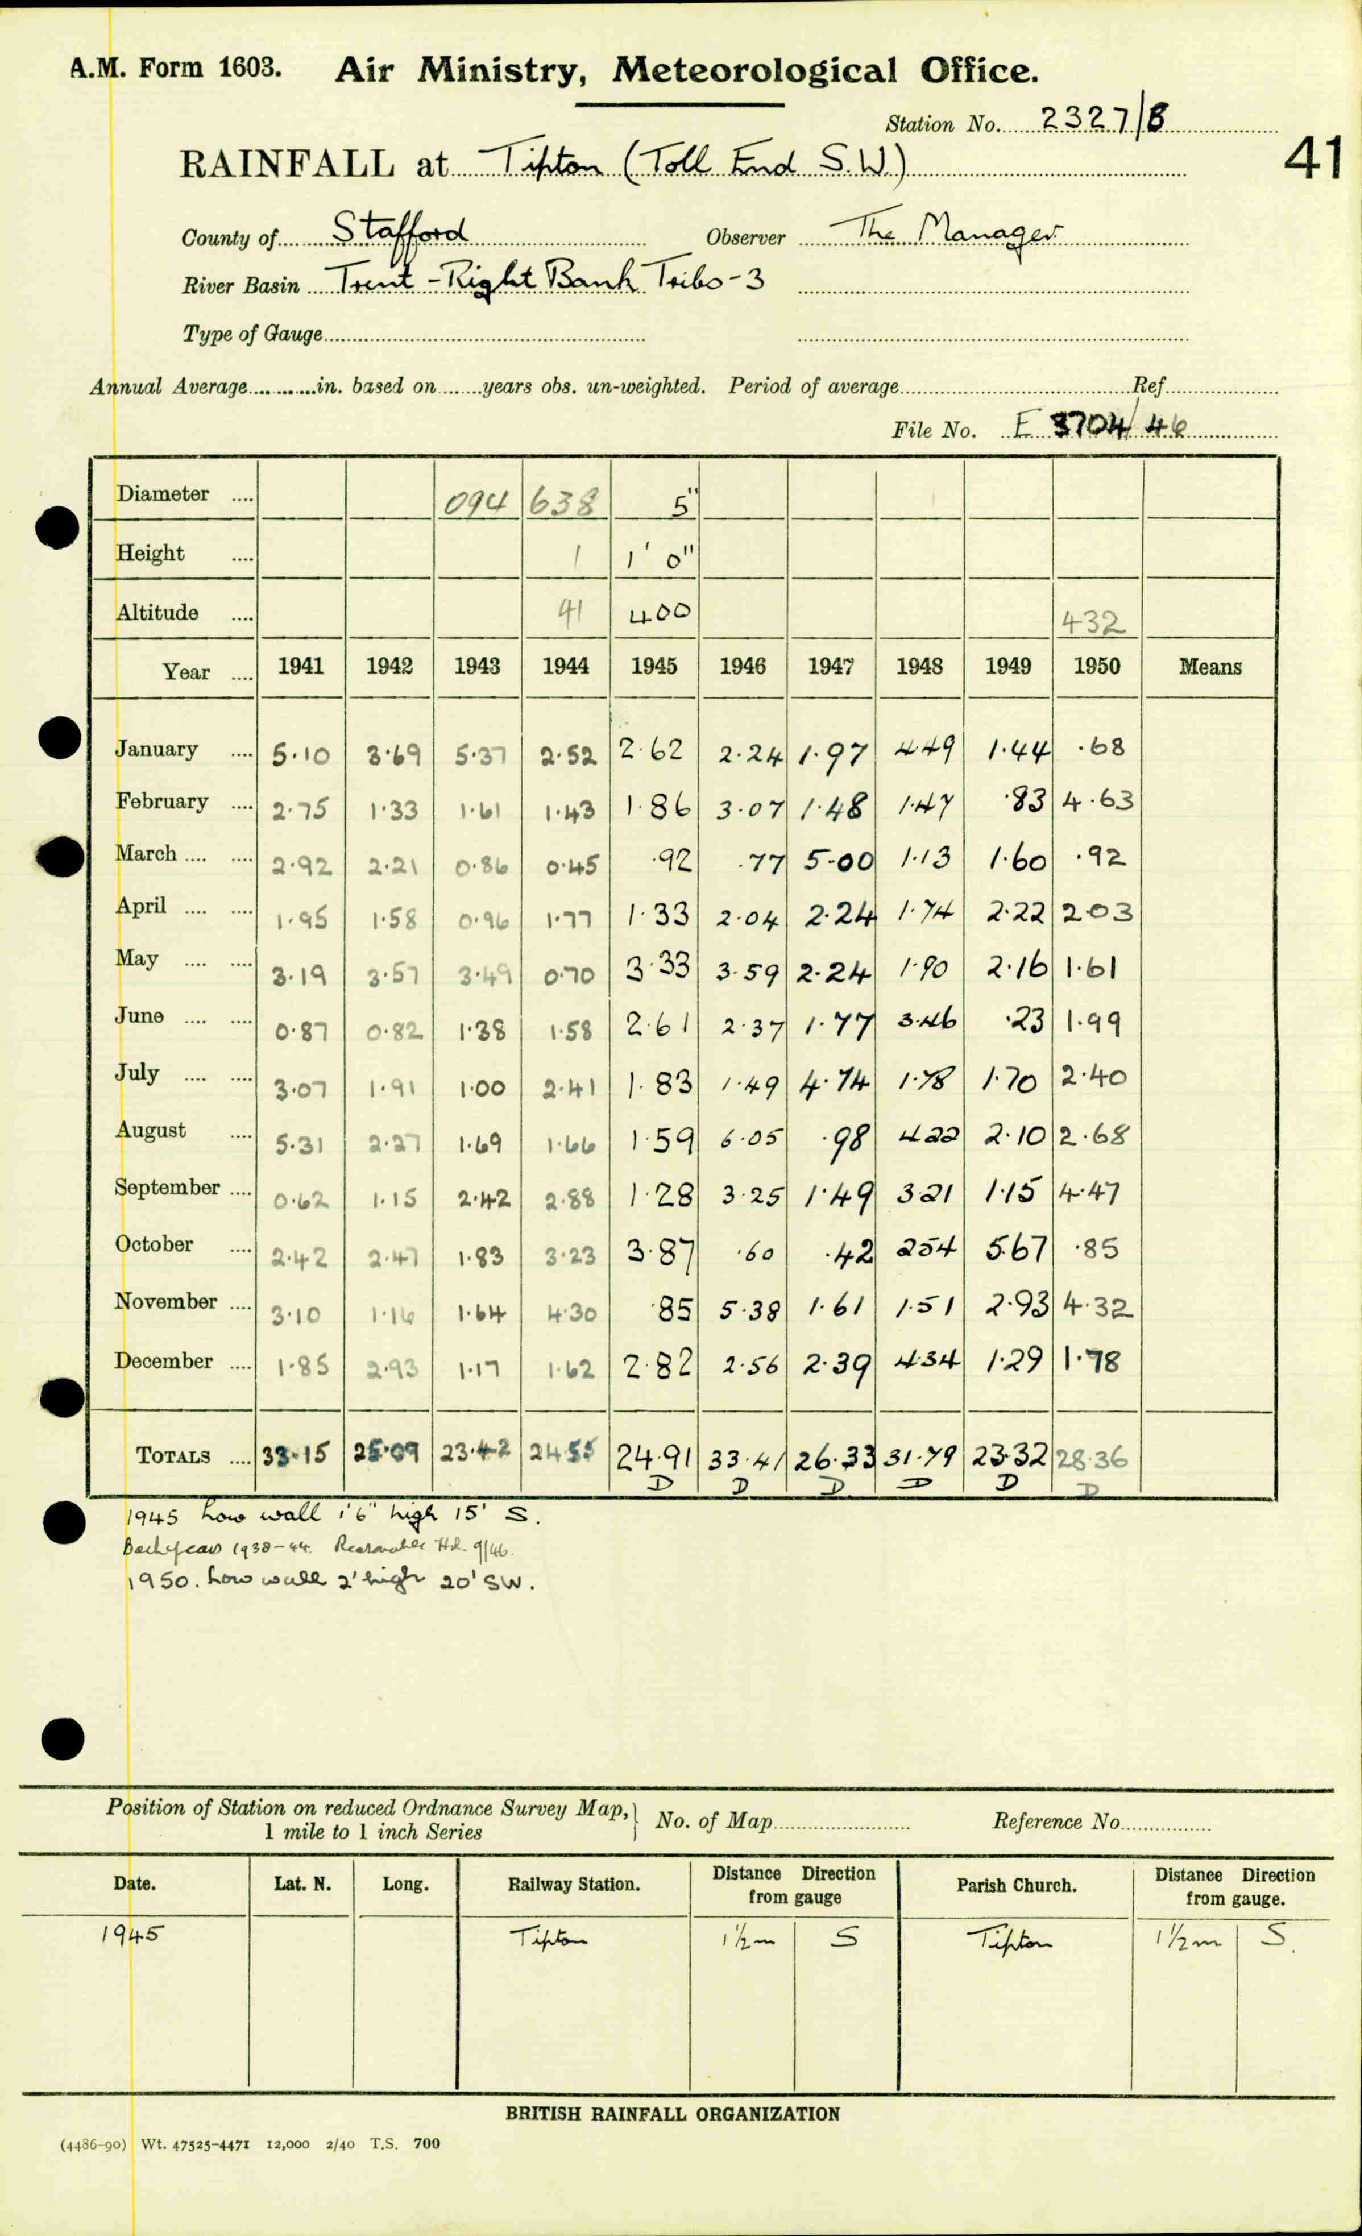 A.M. Form 1603. Air Ministry, Meteorological Office.
Station No. 2327/8
41
RAINFALL at Tipton (Toll End S.W.)
County of Stafford Observer The Manager
River Basin Trent - Right Bank Tribs - 3
Type of Gauge
Annual Average in. based on years obs. un-weighted. Period of average Ref
File No. E 3704/46
Diameter 094 638 5"
Height 1 1' 0"
Altitude 41 400 432
Year 1941 1942 1943 1944 1945 1946 1947 1948 1949 1950 Means
January 5.10 3.69 5.37 2.52 2.62 2.24 1.97 4.49 1.44 .68
February 2.75 1.33 1.61 1.43 1.86 3.07 1.48 1.47 .83 4.63
March 2.92 2.21 0.86 0.45 .92 .77 5.00 1.13 1.60 .92
April 1.95 1.58 0.96 1.77 1.33 2.04 2.24 1.74 2.22 2.03
May 3.19 3.57 3.49 0.70 3.33 3.59 2.24 1.90 2.16 1.61
June 0.87 0.82 1.38 1.58 2.61 2.37 1.77 3.46 .23 1.99
July 3.07 1.91 1.00 2.41 1.83 1.49 4.74 1.78 1.70 2.40
August 5.31 2.27 1.69 1.66 1.59 6.05 .98 4.22 2.10 2.68
September 0.62 1.15 2.42 2.88 1.28 3.25 1.49 3.21 1.15 4.47
October 2.42 2.47 1.83 3.23 3.87 .60 .42 2.54 5.67 .85
November 3.10 1.16 1.64 4.30 .85 5.38 1.61 1.51 2.93 4.32
December 1.85 2.93 1.17 1.62 2.82 2.56 2.39 4.34 1.29 1.78
TOTALS 33.15 25.09 23.42 24.55 24.91 33.41 26.33 31.79 23.32 28.36
D D D D D D
1945 Low wall 1'6" high 15' S.
Back years 1938-44. Reasonable Hd. 9/46.
1950. Low wall 2' high 20' SW.
Position of Station on reduced Ordnance Survey Map, No. of Map Reference No.
1 mile to 1 inch Series
Date. Lat. N. Long. Railway Station. Distance Direction from gauge Parish Church. Distance Direction from gauge.
1945 Tipton 1½m S Tipton 1½m S.
BRITISH RAINFALL ORGANIZATION
(4486-90) Wt. 47525-4471 12,000 2/40 T.S. 700